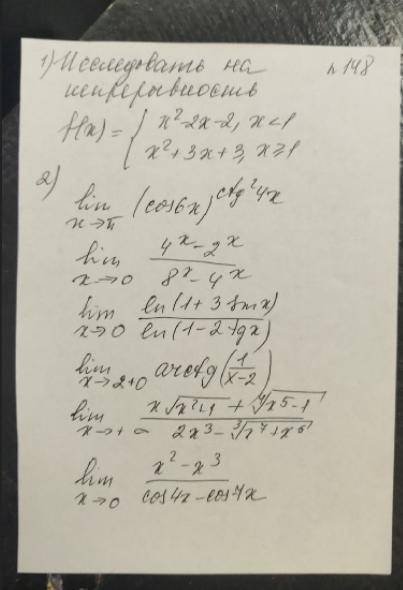 1) Исследовать на n 148
непрерывность
f(x) = { x²-2x-2, x<1
x²+3x+3, x⩾1
2)
lim x→π (cos6x)^ctg²4x
lim x→0 (4^x - 2^x)/(8^x - 4^x)
lim x→0 ln(1+3sinx)/ln(1-2tgx)
lim x→2+0 arctg(1/(x-2))
lim x→+∞ (x√(x²+1) + ∜(x⁵-1))/(2x³ - ∛(x⁷+x⁵))
lim x→0 (x²-x³)/(cos4x-cos7x)